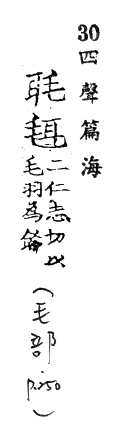 30四聲篇海
毦
二仁志切以
毛羽為飾
(毛部 p.250)